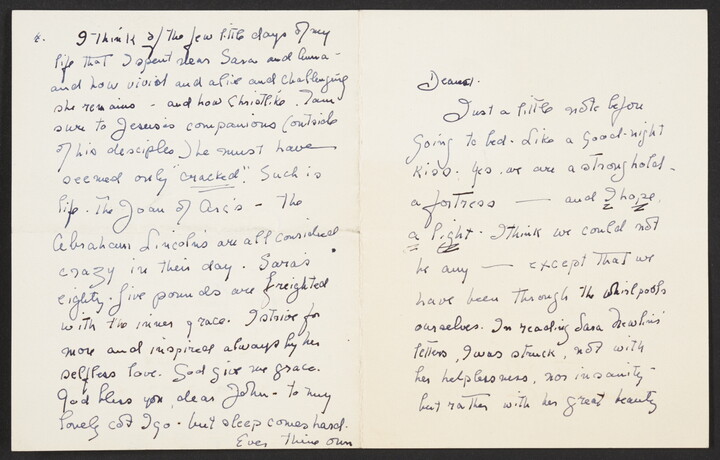 Dearest.
Just a little note before
going to bed. Like a good-night
kiss. Yes. we are a stronghold.
a fortress — and I hope,
a light. I think we could not
be any — except that we
have been through the whirlpools
ourselves. In reading Sara
letters, I was struck, not with
her helplessness, nor insanity -
but rather with her great beauty
I think of the few little days of my
life that I spent near Sara and Anna -
and how vivid and alive and challenging
she remains - and how Christlike. I am
sure to Jesus's companions (outside
of his disciples) he must have
seemed only "cracked". Such is
life. The Joan of Arcs - the
Abraham Lincolns are all considered
crazy in their day. Sara's
eighty-five pounds are freighted
with the inner grace. I strive for
more and inspired always by her
selfless love. God give me grace.
God bless you, dear John - to my
lonely cot I go - but sleep comes hard.
Ever thine own